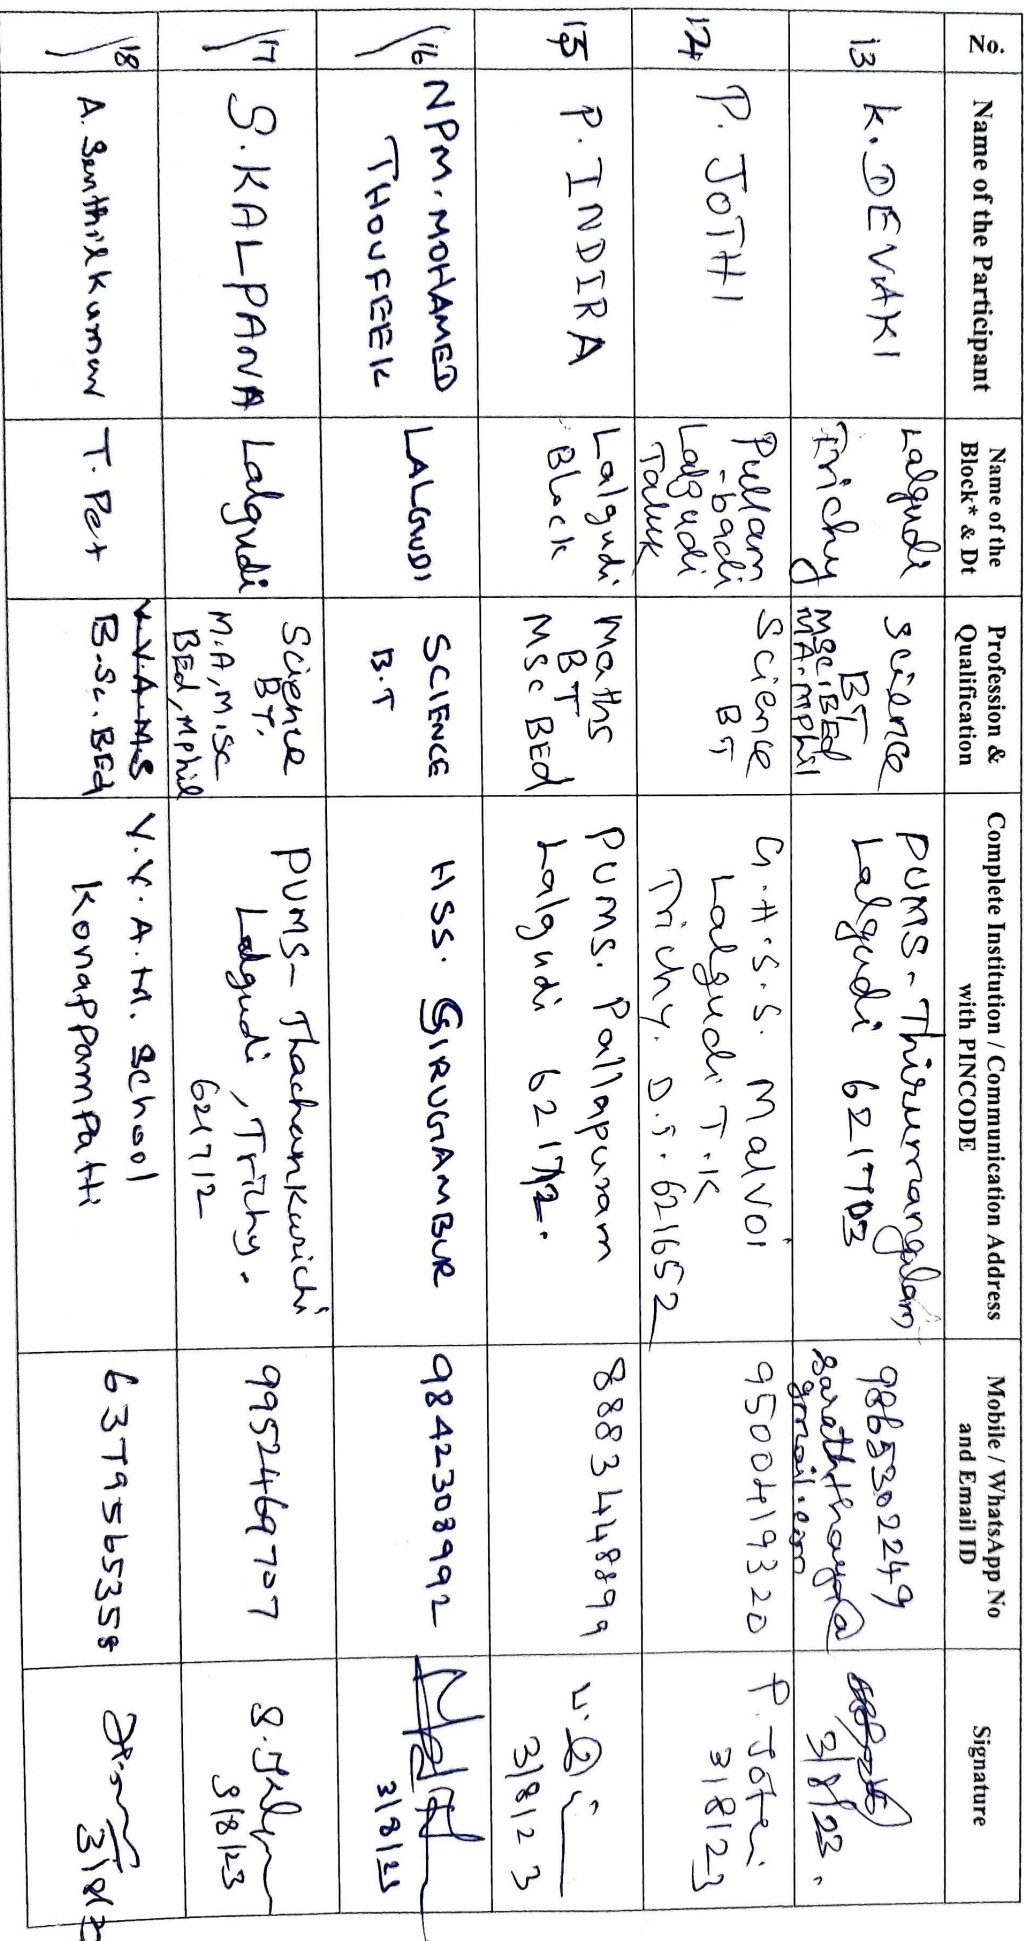 No.
Name of the Participant
Name of the
Block* & Dt
Profession &
Qualification
Complete Institution / Communication Address
with PINCODE
Mobile / WhatsApp No
and Email ID
Signature
13
K. DEVAKI
Lalgudi
Trichy
Science
BT
MSc, BEd
M.A. MPhil
PUMS - Thirumangalam
Lalgudi 621703
9865302249
3/8/23.
P. JOTHI
Pullam
-badi
Lalgudi
Taluk
Science
BT
G.H.S.S. Malvoi
Lalgudi T.K
Trichy. D.T. 621652
9500419320
P. Jothi
3/8/23
15
P. INDIRA
Lalgudi
Block
Maths
BT
MSc BEd
PUMS. Pallapuram
Lalgudi 621712.
8883448899
3/8/23
16
NPM. MOHAMED
THOUFEEK
LALGUDI
SCIENCE
B.T
HSS. SIRUGAMBUR
9842308992
3/8/23
17
S. KALPANA
Lalgudi
Science
BT.
M.A, M.Sc
BEd, Mphil
PUMS - Thachankurichi
Lalgudi, Trichy.
621712
9952469707
3/8/23
18
A. Senthilkumar
T. Pet
B.Sc. BEd
Y.Y.A.M. School
Konappampatti
6379565358